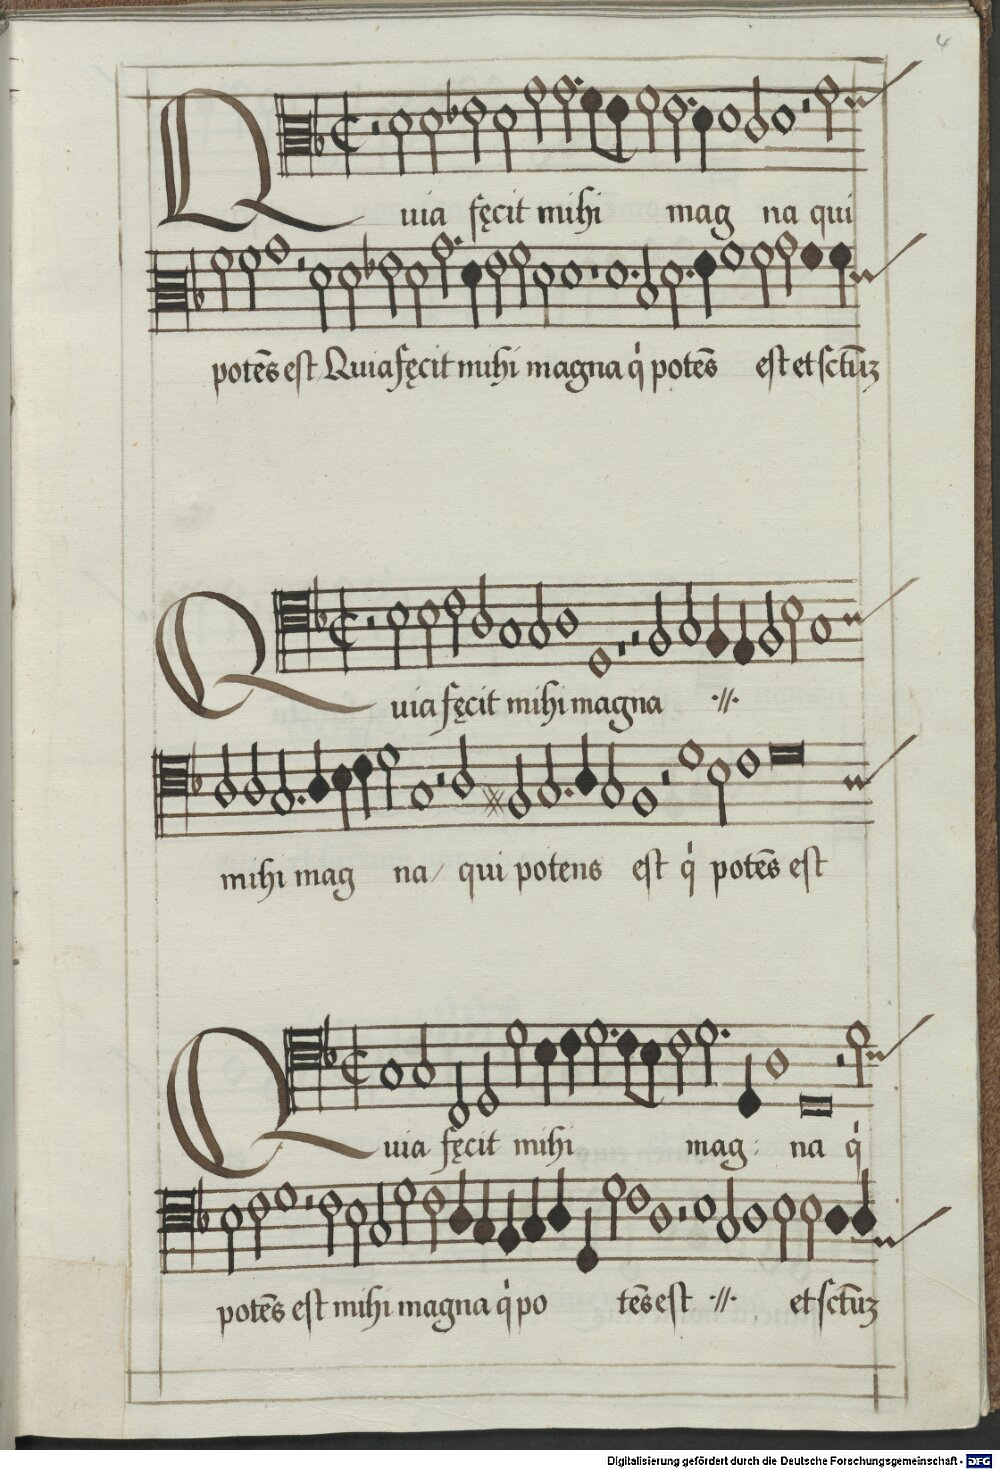 4
Quia fęcit mihi mag na qui
potēs est Quia fęcit mihi magna q̇ potēs est et sctūꝫ
Quia fęcit mihi magna ·//·
mihi mag na / qui potens est q̇ potēs est
Quia fęcit mihi mag : na q̇
potēs est mihi magna q̇ po tēs est ·//· et sctūꝫ
Digitalisierung gefördert durch die Deutsche Forschungsgemeinschaft - DFG